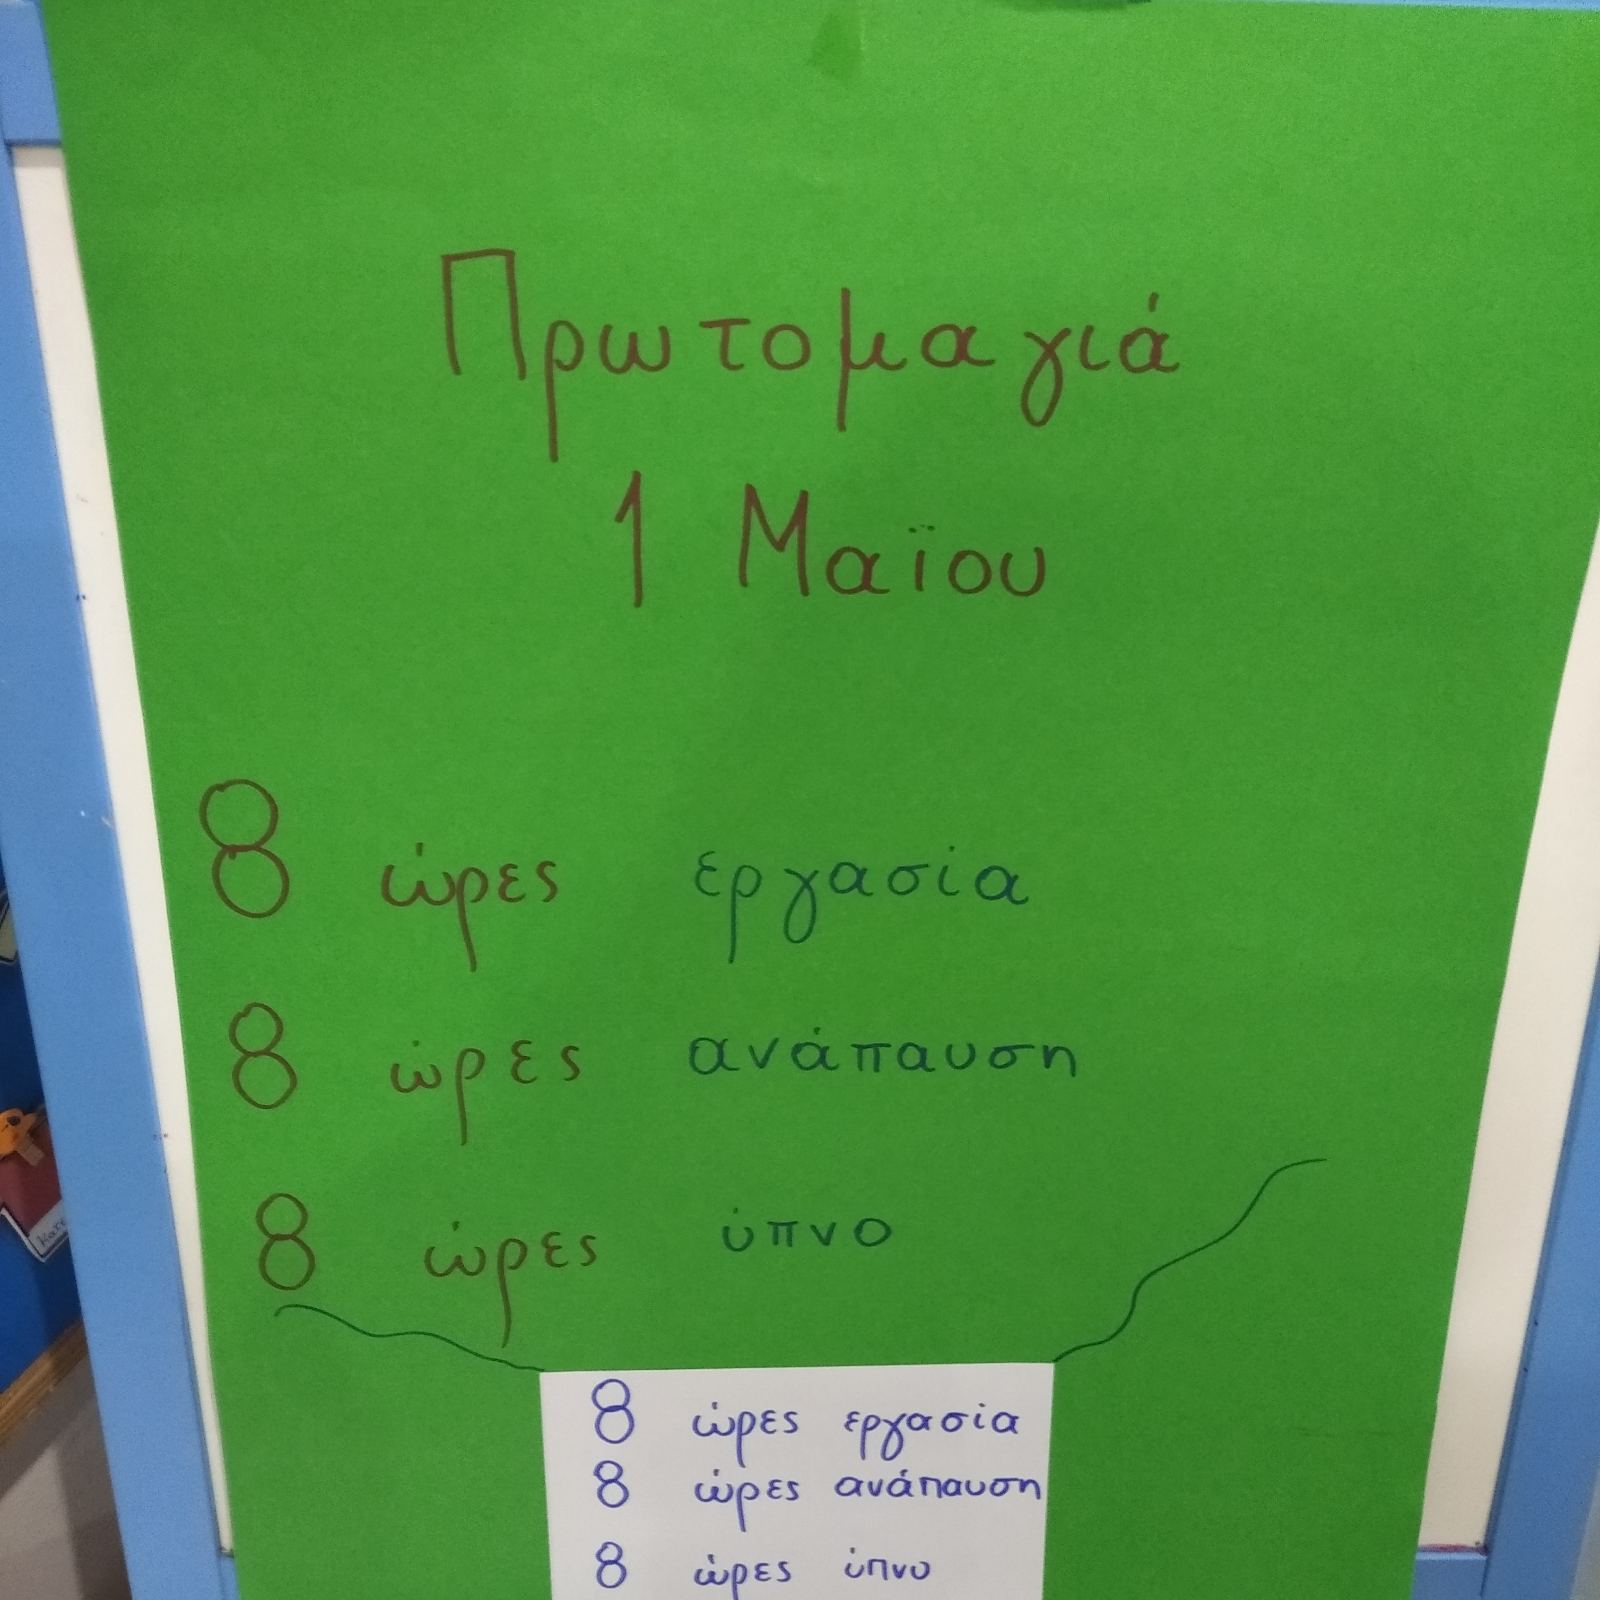 Πρωτομαγιά
1 Μαϊου
8 ώρες εργασία
8 ώρες ανάπαυση
8 ώρες ύπνο
8 ώρες εργασία
8 ώρες ανάπαυση
8 ώρες ύπνο